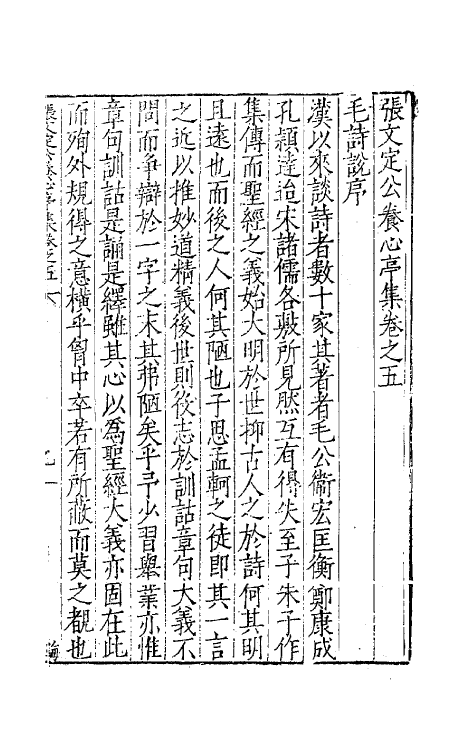 張文定公養心亭集卷之五
毛詩說序
漢以來談詩者數十家其著者毛公衞宏匡衡鄭康成
孔頴逹迨宋諸儒各敷所見然互有得失至子朱子作
集傳而聖經之義始大明於世抑古人之於詩何其明
且遠也而後之人何其陋也子思孟軻之徒即其一言
之近以推妙道精義後世則役志於訓詁章句大義不
問而爭辯於一字之末其弗陋矣乎予少習舉業亦惟
章句訓詁是誦是繹雖其心以爲聖經大義亦固在此
而殉外規得之意橫乎胷中卒若有所蔽而莫之覩也
張文定公養心亭集卷之五